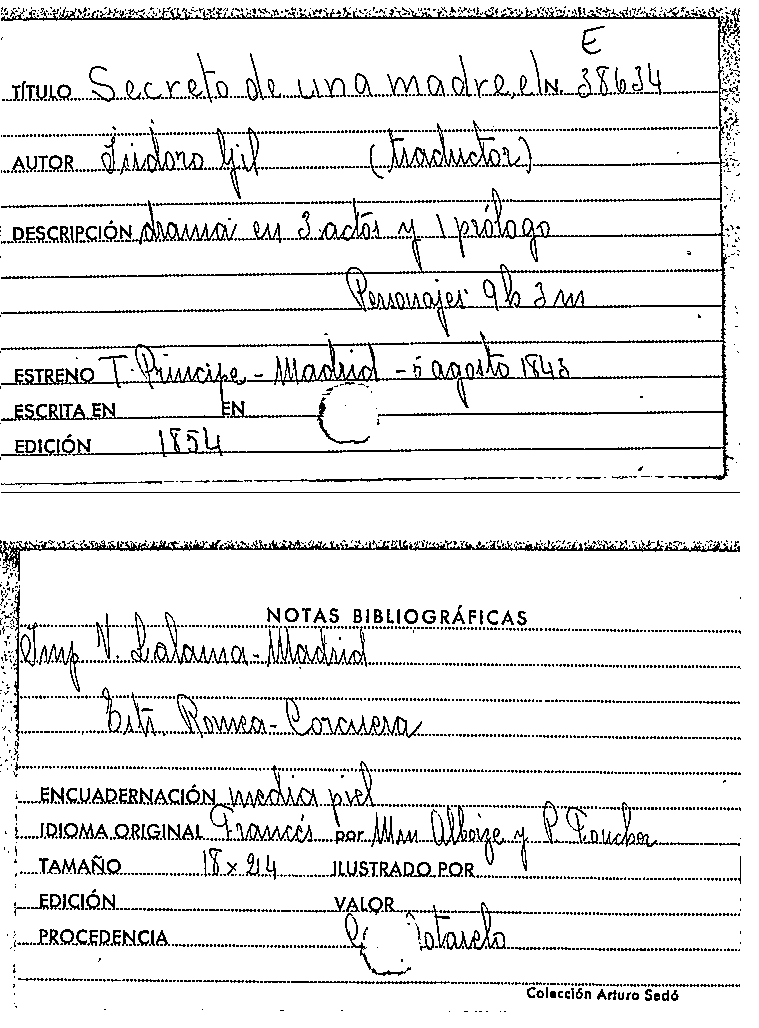 E
TÍTULO Secreto de una madre, el N. 38634
AUTOR Isidoro Gil (traductor)
DESCRIPCIÓN drama en 3 actos y 1 prólogo
Personajes 9 h 3 m
ESTRENO T. Principe - Madrid - 5 agosto 1843
ESCRITA EN EN
EDICIÓN 1854
NOTAS BIBLIOGRÁFICAS
Imp V. Lalama - Madrid
Estr. Romea - Corcuera
ENCUADERNACIÓN media piel
IDIOMA ORIGINAL Francés por Alboize y P. Foucher
TAMAÑO 18 x 24 ILUSTRADO POR
EDICIÓN VALOR
PROCEDENCIA
Colección Arturo Sedó